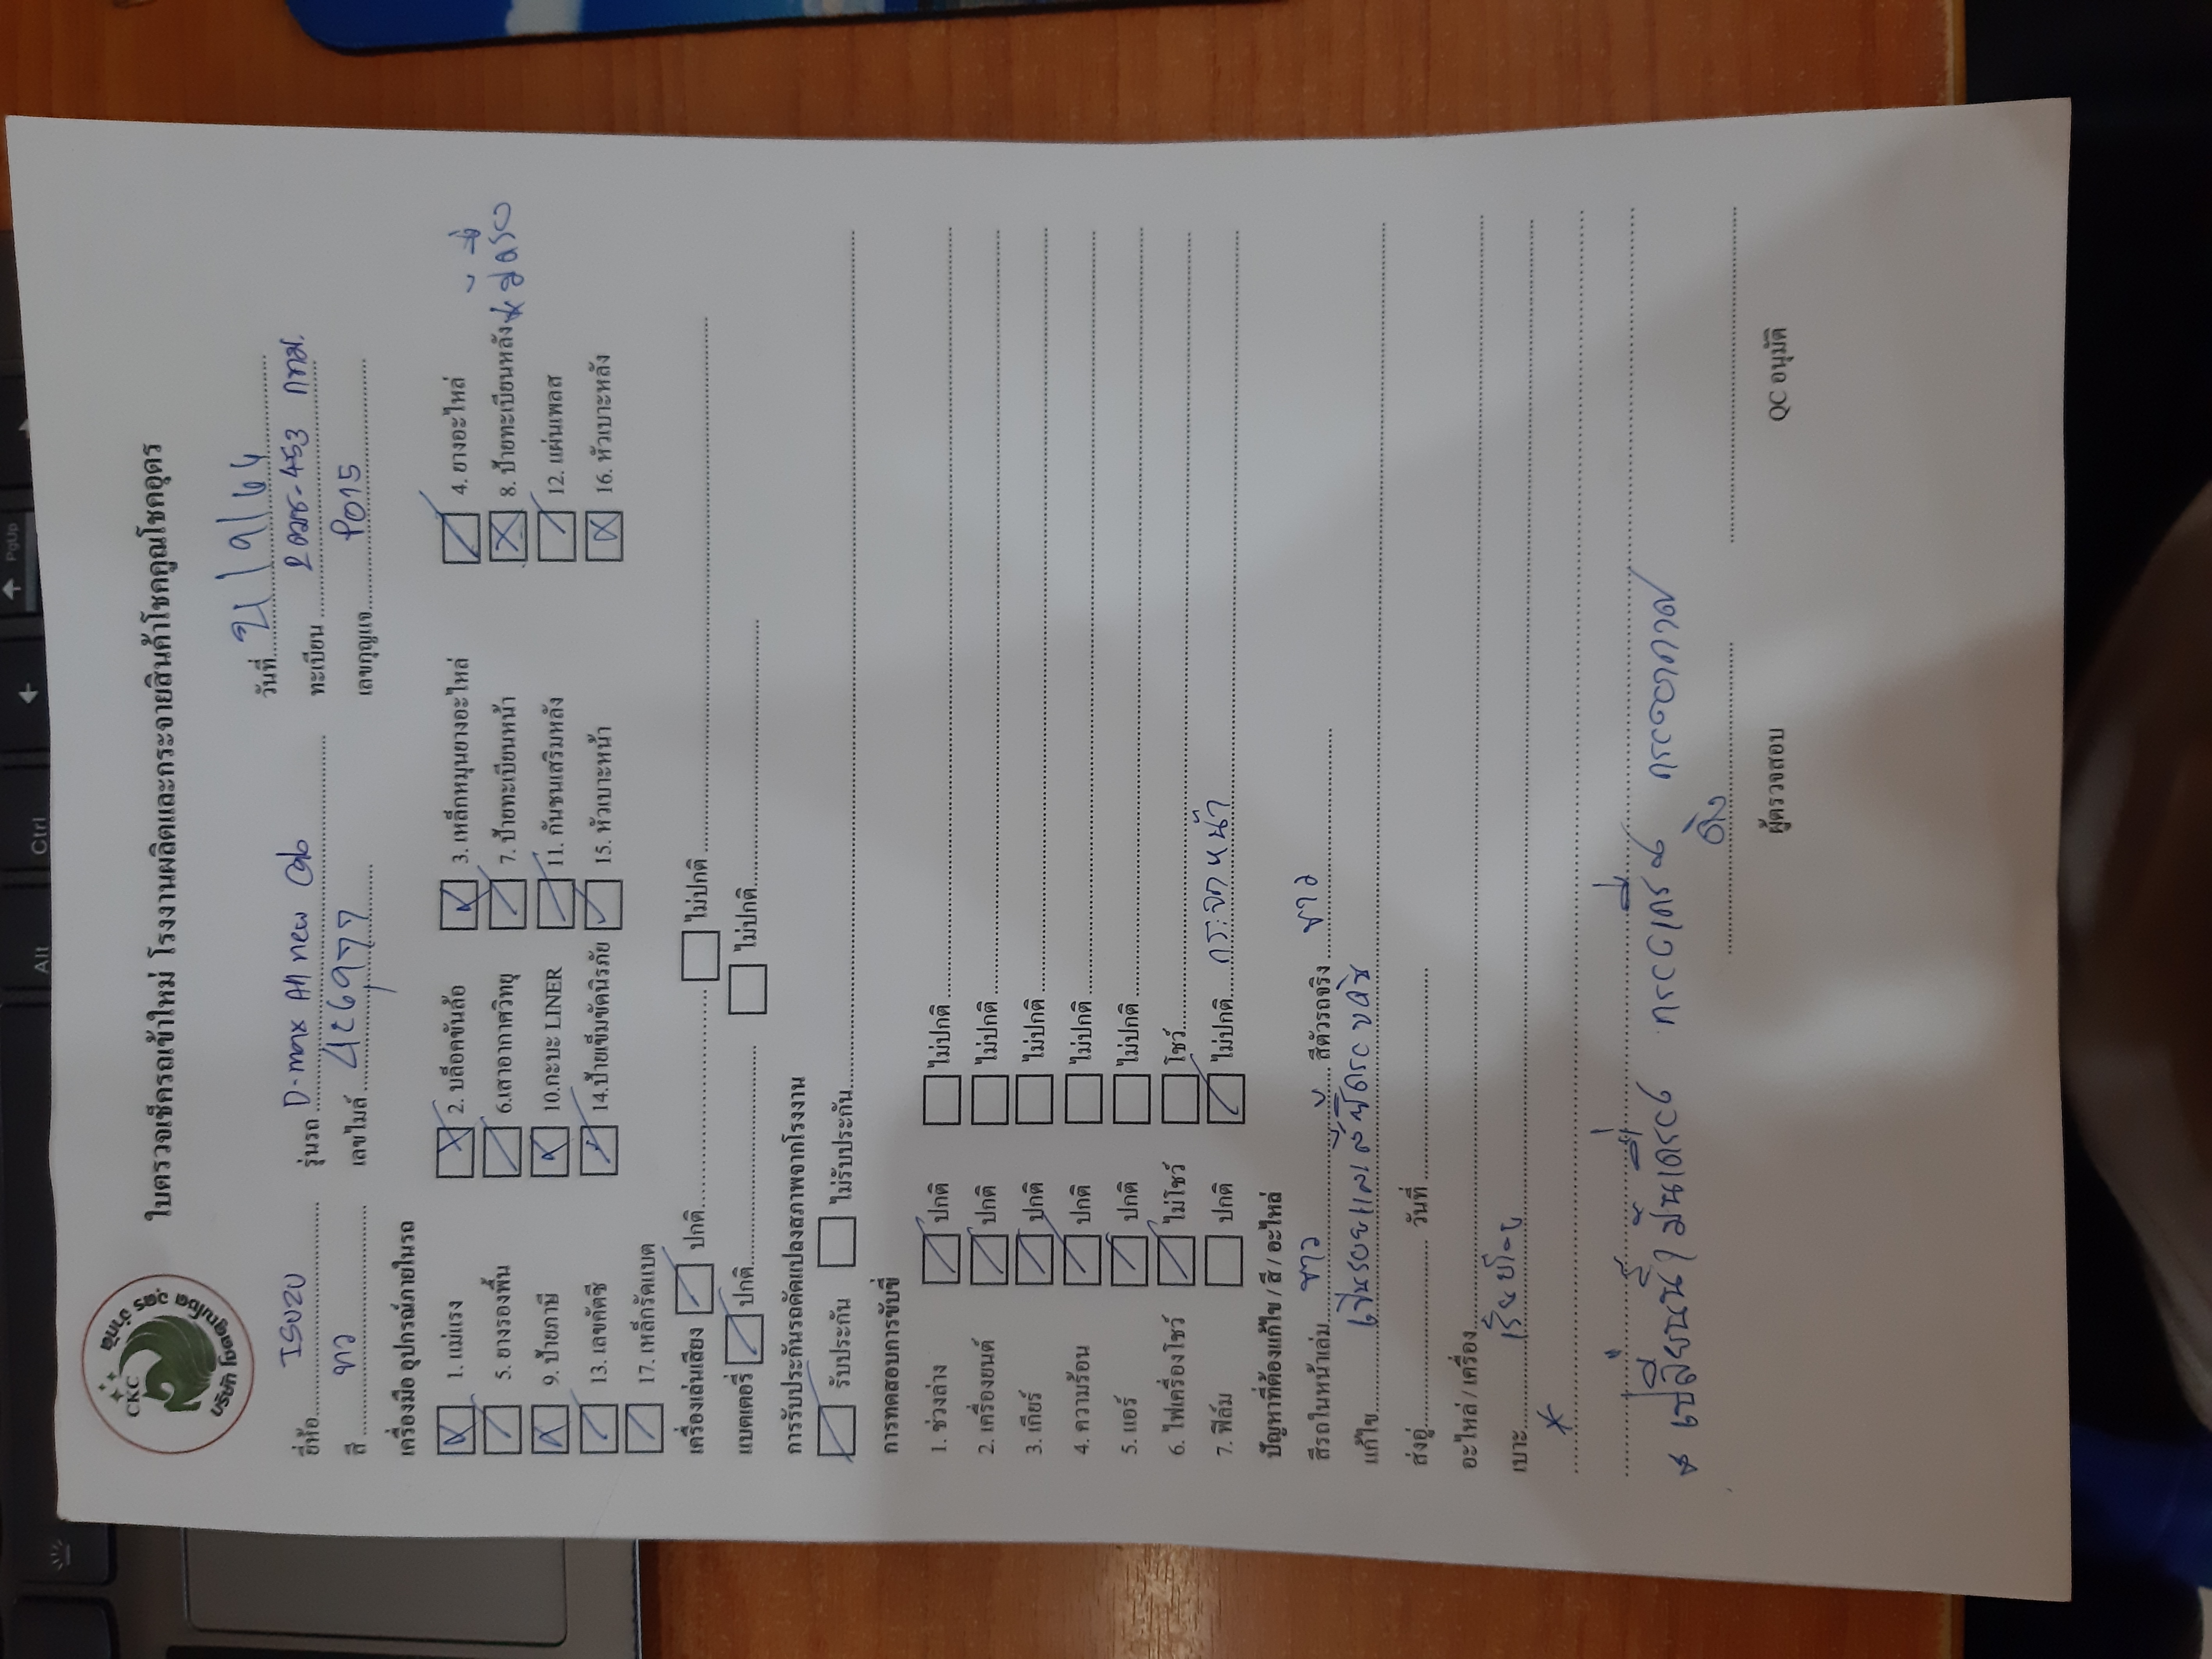 CKC
บริษัท โชคคูณโชค อุดร จำกัด
ใบตรวจเช็ครถเข้าใหม่ โรงงานผลิตและกระจายสินค้าโชคคูณโชคอุดร
วันที่ 21/9/64
ยี่ห้อ ISUZU รุ่นรถ D-max All new Cab ทะเบียน 2ฒร-453 กทม.
สี ขาว เลขไมล์ 426977 เลขกุญแจ P015
เครื่องมือ อุปกรณ์ภายในรถ
1. แม่แรง 2. บล็อคขันล้อ 3. เหล็กหมุนยางอะไหล่ 4. ยางอะไหล่
5. ยางรองพื้น 6.เสาอากาศวิทยุ 7. ป้ายทะเบียนหน้า 8. ป้ายทะเบียนหลัง
9. ป้ายภาษี 10.กะบะ LINER 11. กันชนเสริมหลัง 12. แผ่นเพลส
13. เลขคัตซี 14.ป้ายเข็มขัดนิรภัย 15. หัวเบาะหน้า 16. หัวเบาะหลัง
17. เหล็กรัดแบต
เครื่องเล่นเสียง ปกติ ไม่ปกติ
แบตเตอรี่ ปกติ ไม่ปกติ
การรับประกันรถดัดแปลงสภาพจากโรงงาน
รับประกัน ไม่รับประกัน
การทดสอบการขับขี่
1. ช่วงล่าง ปกติ ไม่ปกติ
2. เครื่องยนต์ ปกติ ไม่ปกติ
3. เกียร์ ปกติ ไม่ปกติ
4. ความร้อน ปกติ ไม่ปกติ
5. แอร์ ปกติ ไม่ปกติ
6. ไฟเครื่องโชว์ ไม่โชว์ โชว์
7. ฟิล์ม ปกติ ไม่ปกติ กระจกหน้า
ปัญหาที่ต้องแก้ไข / สี / อะไหล่
สีรถในหน้าเล่ม ขาว สีตัวรถจริง ขาว
แก้ไข
ส่งอู่ วันที่
อะไหล่ / เครื่อง
เบาะ
* เปลี่ยนน้ำมันเครื่อง กรองเครื่อง กรองอากาศ
ผู้ตรวจสอบ QC อนุมัติ
Alt Ctrl PgUp